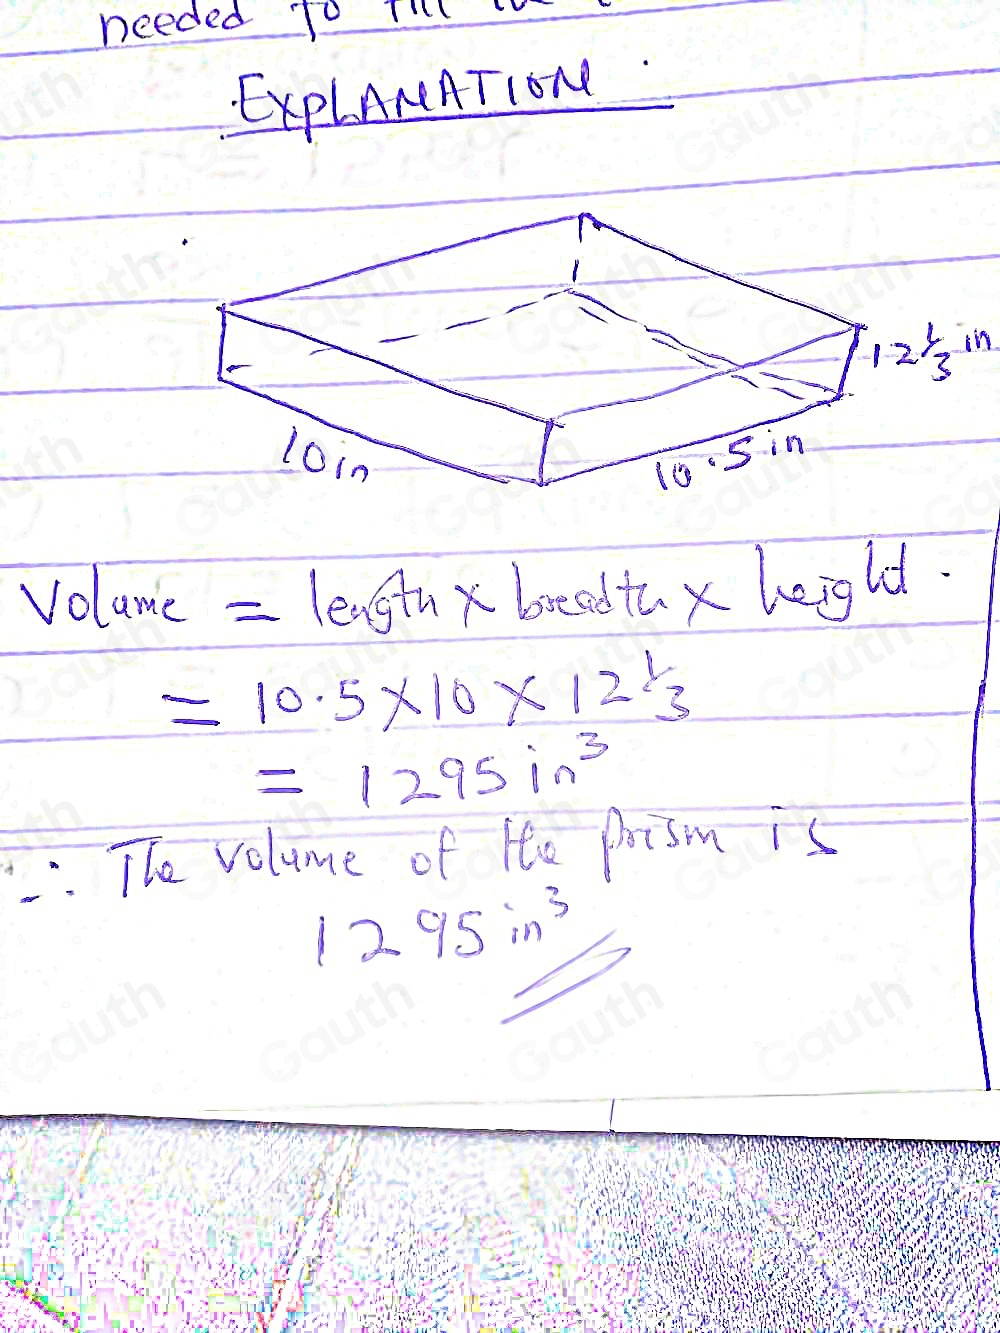 needed to fill the
EXPLANATION
12 1/3 in
10in
10.5in
Volume = length × breadth × height.
= 10.5 × 10 × 12 1/3
= 1295 in³
∴ The volume of the prism is
1295 in³